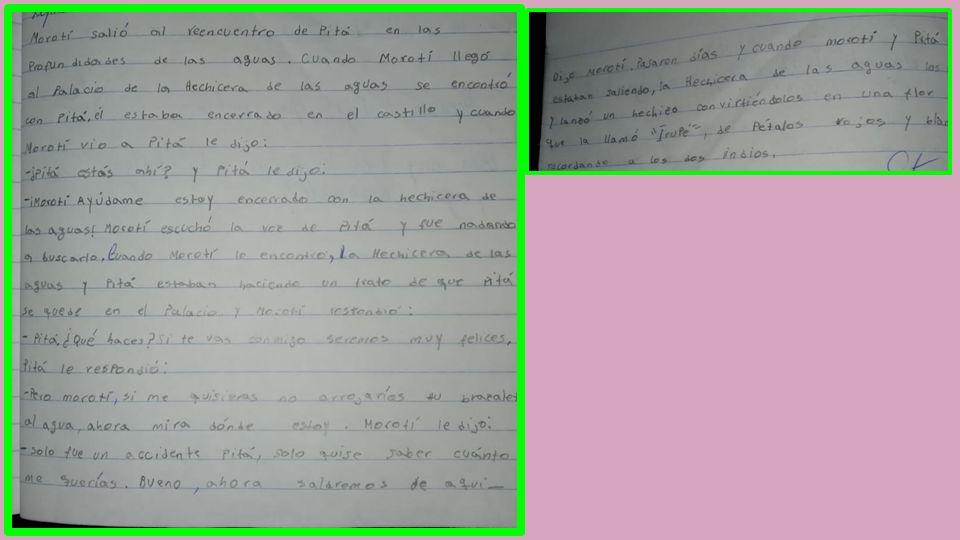 Morotí salió al reencuentro de Pitá en las
Profundidades de las aguas. Cuando Morotí llegó
al Palacio de la Hechicera de las aguas se encontró
con Pitá, él estaba encerrado en el castillo y cuando
Morotí vio a Pitá le dijo:
-¿Pitá estás ahí? y Pitá le dijo:
-¡Morotí Ayúdame estoy encerrado con la hechicera de
las aguas! Morotí escuchó la voz de Pitá y fue nadando
a buscarlo. Cuando Morotí lo encontro, la Hechicera de las
aguas y Pitá estaban haciendo un trato de que Pitá
se quede en el Palacio y Morotí respondió:
- Pitá ¿Qué haces? Si te vas conmigo seremos muy felices.
Pitá le respondió:
-Pero morotí, si me quisieras no arrojarías tu brazalet
al agua, ahora mira dónde estoy. Morotí le dijo:
-Solo fue un accidente Pitá, solo quise saber cuánto
me querías. Bueno, ahora saldremos de aquí—
Dijo Morotí. Pasaron días y cuando morotí y Pitá
estaban saliendo, la Hechicera de las aguas los
lanzó un hechizo convirtiéndolos en una flor
que la llamó "Irupé", de Pétalos rojos y bla
recordando a los dos indios.